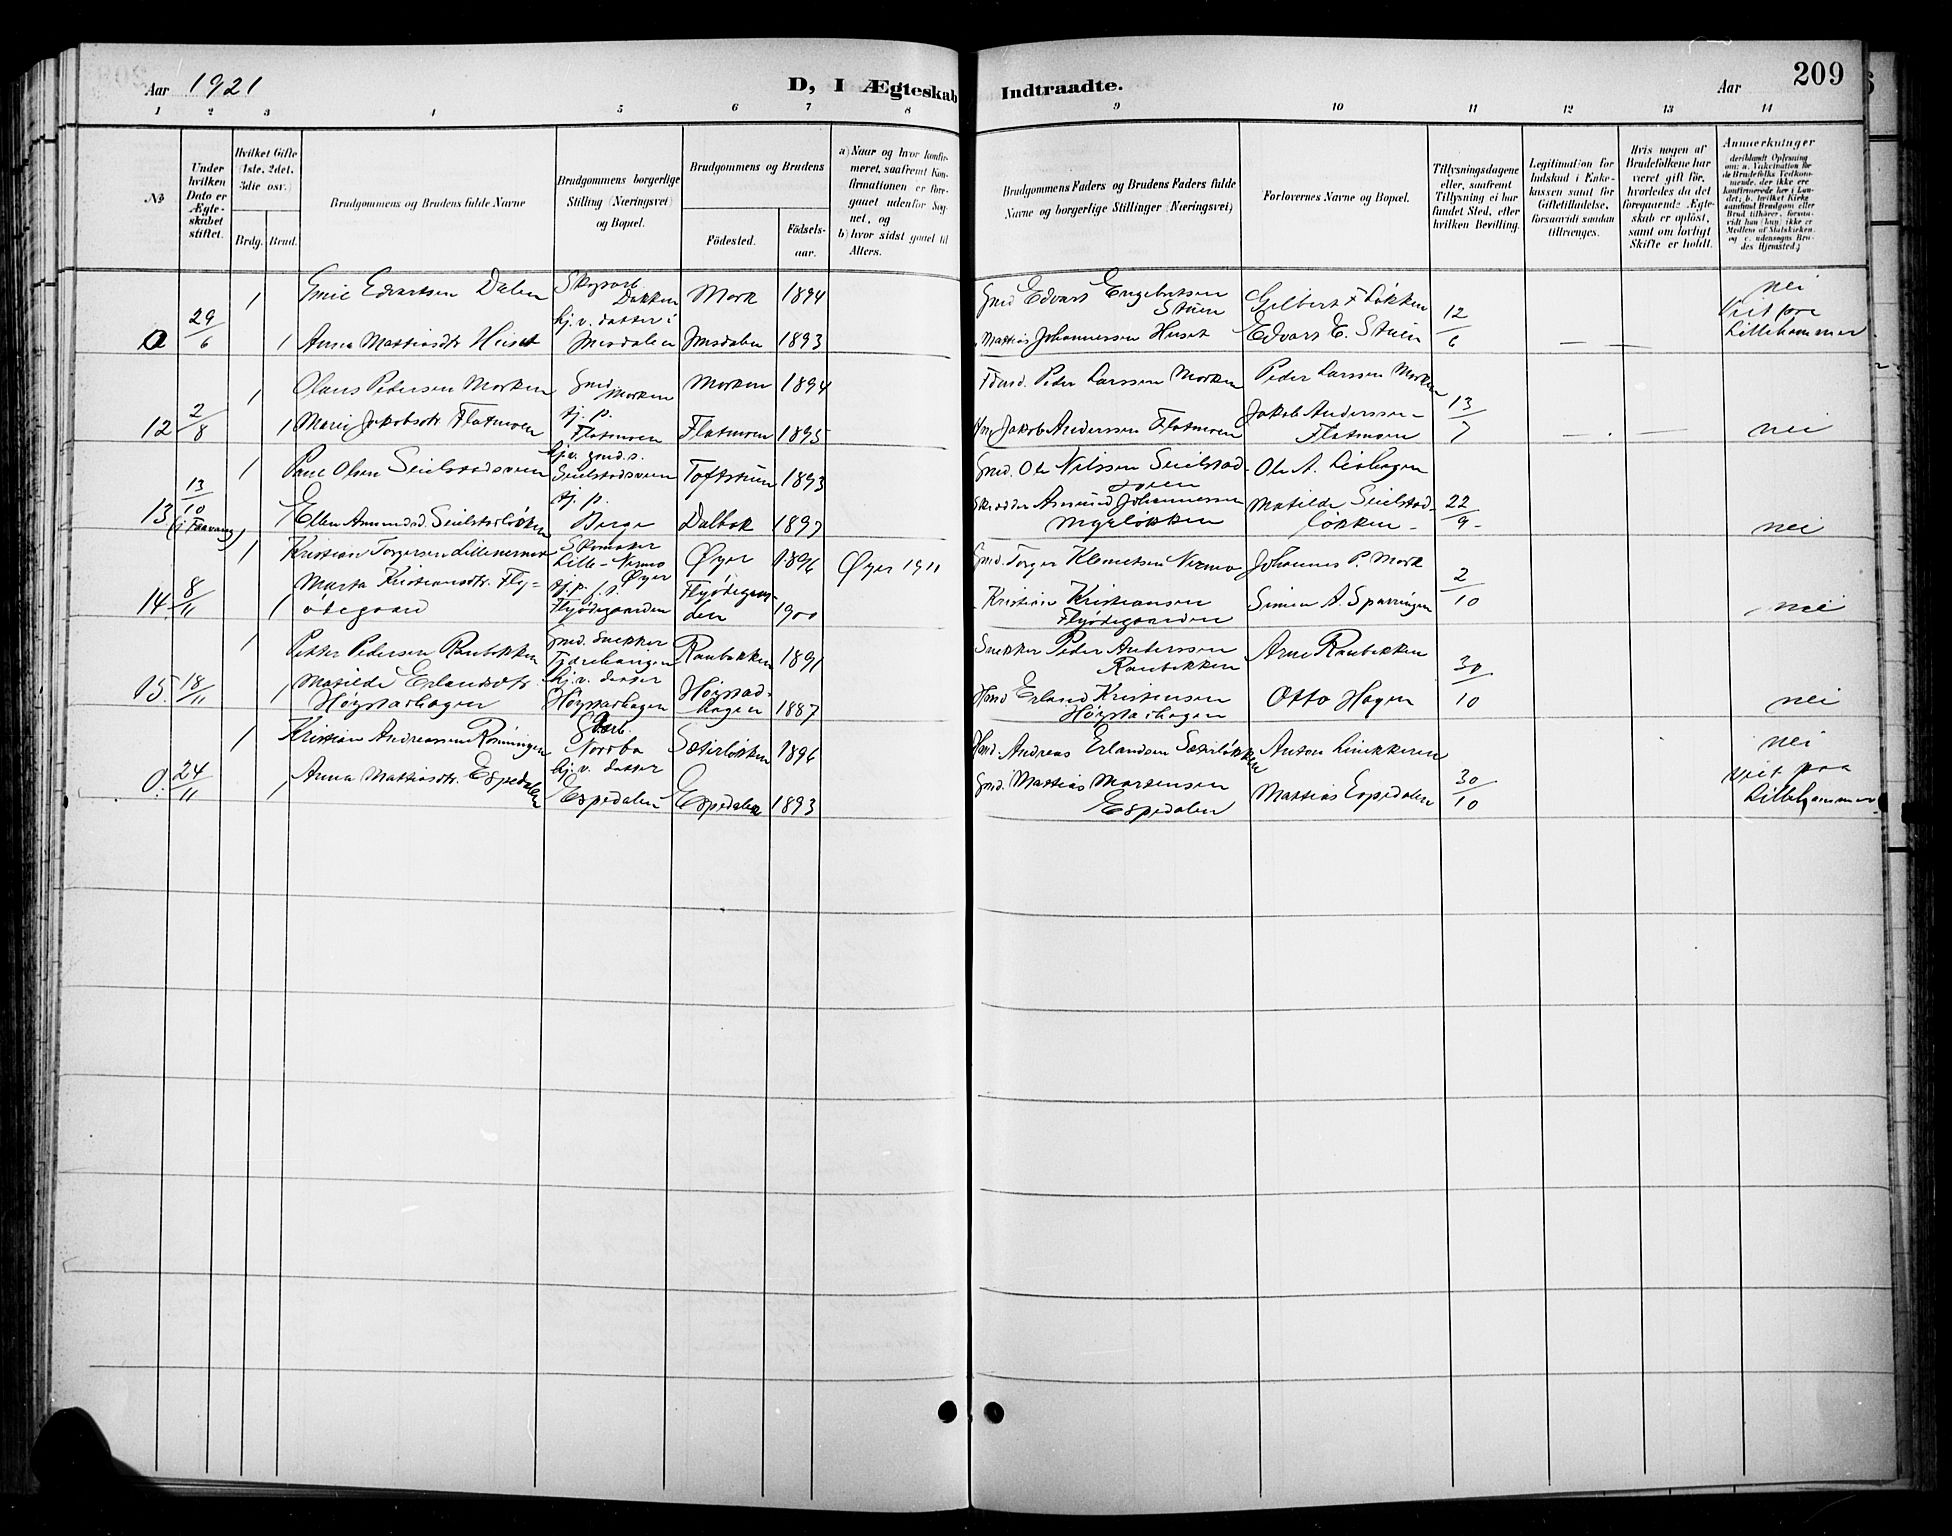 Aar 1921
D, I Ægteskab Indtraadte.
Aar
209
1 2 3 4 5 6 7 8 9 10 11 12 13 14
№
Under hvilken Dato er Ægteskabet stiftet.
Hvilket Gifte (1ste, 2det, 3die osv.)
Brdg. Brud.
Brudgommens og Brudens fulde Navne
Brudgommens borgerlige Stilling (Næringsvei) og Bopæl.
Brudgommens og Brudens
Fødested.
Fødselsaar.
a) Naar og hvor konfirmeret, saafremt Konfirmationen er foregaaet udenfor Sognet, og
b) hvor sidst gaaet til Alters.
Brudgommens Faders og Brudens Faders fulde Navne og borgerlige Stillinger (Næringsvei)
Forlovernes Navne og Bopæl.
Tillysningsdagene eller, saafremt Tillysning ei har fundet Sted, efter hvilken Bevilling.
Legitimation for Indskud i Enkekassen samt for Giftetilladelse, forsaavidt saadan tiltrænges.
Hvis nogen af Brudefolkene har været gift før, hvorledes da det foregaaende Ægteskab er opløst, samt om lovligt Skifte er holdt.
Anmerkninger
0 29/6
1 Emil Edvartsen Dalen Dakken Mork 1894 Gmd Edvart Engebretsen Stuen Gilbert F Løkken 12/6 nei
1 Anna Mattiasdtr Huset hj.v. datter i Imsdalen Imsdalen 1893 Mattias Johannessen Huset Edvart E. Stuen Lillehammer
12 2/8
1 Olaus Pedersen Morken Gmd Morken Morken 1894 Peder Larssen Morken Peder Larssen Morken 13/7
1 Marie Jakobsdtr Flatmoen tj. p. Flatmoen Flatmoen 1895 Jakob Anderssen Flatmoen Jakob Anderssen Flatmoen nei
13 13/10 (i Faavang)
1 Paul Olsen Seielstadsveen hj.v. gmd.s. Seielstadsveen Toftstuen 1893 Gmd. Ole Nilssen Seielstadveen Ole A. Lishagen 22/9
1 Ellen Amundsd. Seielstadløkken tj. p. Berge Dalbak 1897 Skrædder Amund Johannessen Myrløkken Matilde Seielstadløkken nei
14 8/11
1 Kristian Torgersen Lillenermo Skomaker Lille-Nermo Øyer Øyer 1896 Øyer 1911 Gmd. Torger Klemetsen Nermo Johannes P. Mork 2/10
1 Marta Kristiansdtr. Flyødegaard tj. p. Flyødegaarden Flyødegaarden 1900 Kristian Kristiansen Flyødegaarden Simen A. Sparringen nei
15 18/11
1 Petter Pedersen Raubekken Gmd. Snekker Raubekken 1891 Snekker Peder Anderssen Raubekken Arne Raubekken 30/10
1 Matilde Erlandsdtr Høystadhagen hj.v. datter Høystadhagen Høystadhagen 1887 Erland Kristensen Høystadhagen Otto Hagen nei
0 24/11
1 Kristian Andreassen Rønningen Nordbo Sæterløkken 1896 Andreas Erlandsen Sæterløkken Anton Linekkeren 30/10 nei
1 Anna Mattiasdtr. Espedalen hj.v. datter Espedalen Espedalen 1893 Gmd. Mattias Mortensen Espedalen Mattias Espedalen viet paa Lillehammer